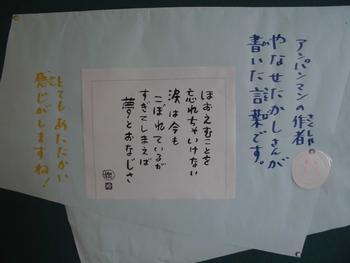 アンパンマンの作者。
さくしゃ
やなせたかしさんが
書いた言葉です。
ほおえむことを
忘れちゃいけない
涙は今も
こぼれているが
すぎてしまえば
夢とおなじさ
とてもあたたかい
感じがしますね!